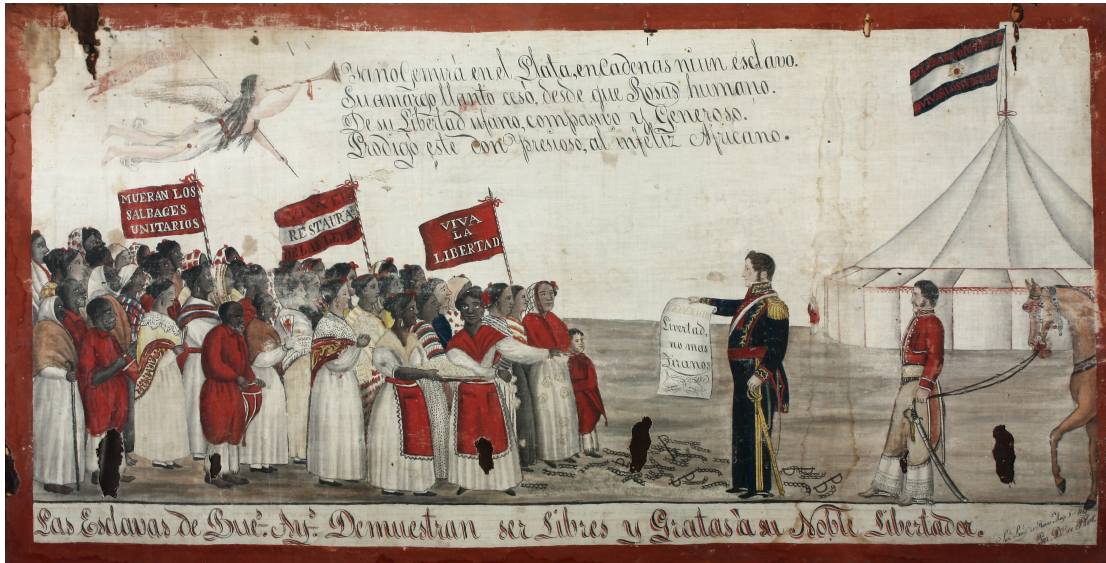 Ya no Gemirá en el Plata, en Cadenas ni un esclavo.
Su amargo llanto cesó, desde que Rosas humano.
De su Libertad ufano, compasibo y Generoso.
Prodigó este don presioso, al infeliz Africano.
MUERAN LOS
SALBAGES
UNITARIOS
VIVA EL
RESTAURA
DE LAS LEYES
VIVA
LA
LIBERTAD
Livertad.
no mas
Tiranos
Las Esclavas de Bue.ˢ Ay.ˢ Demuestran ser Libres y Gratas à su Noble Libertador.